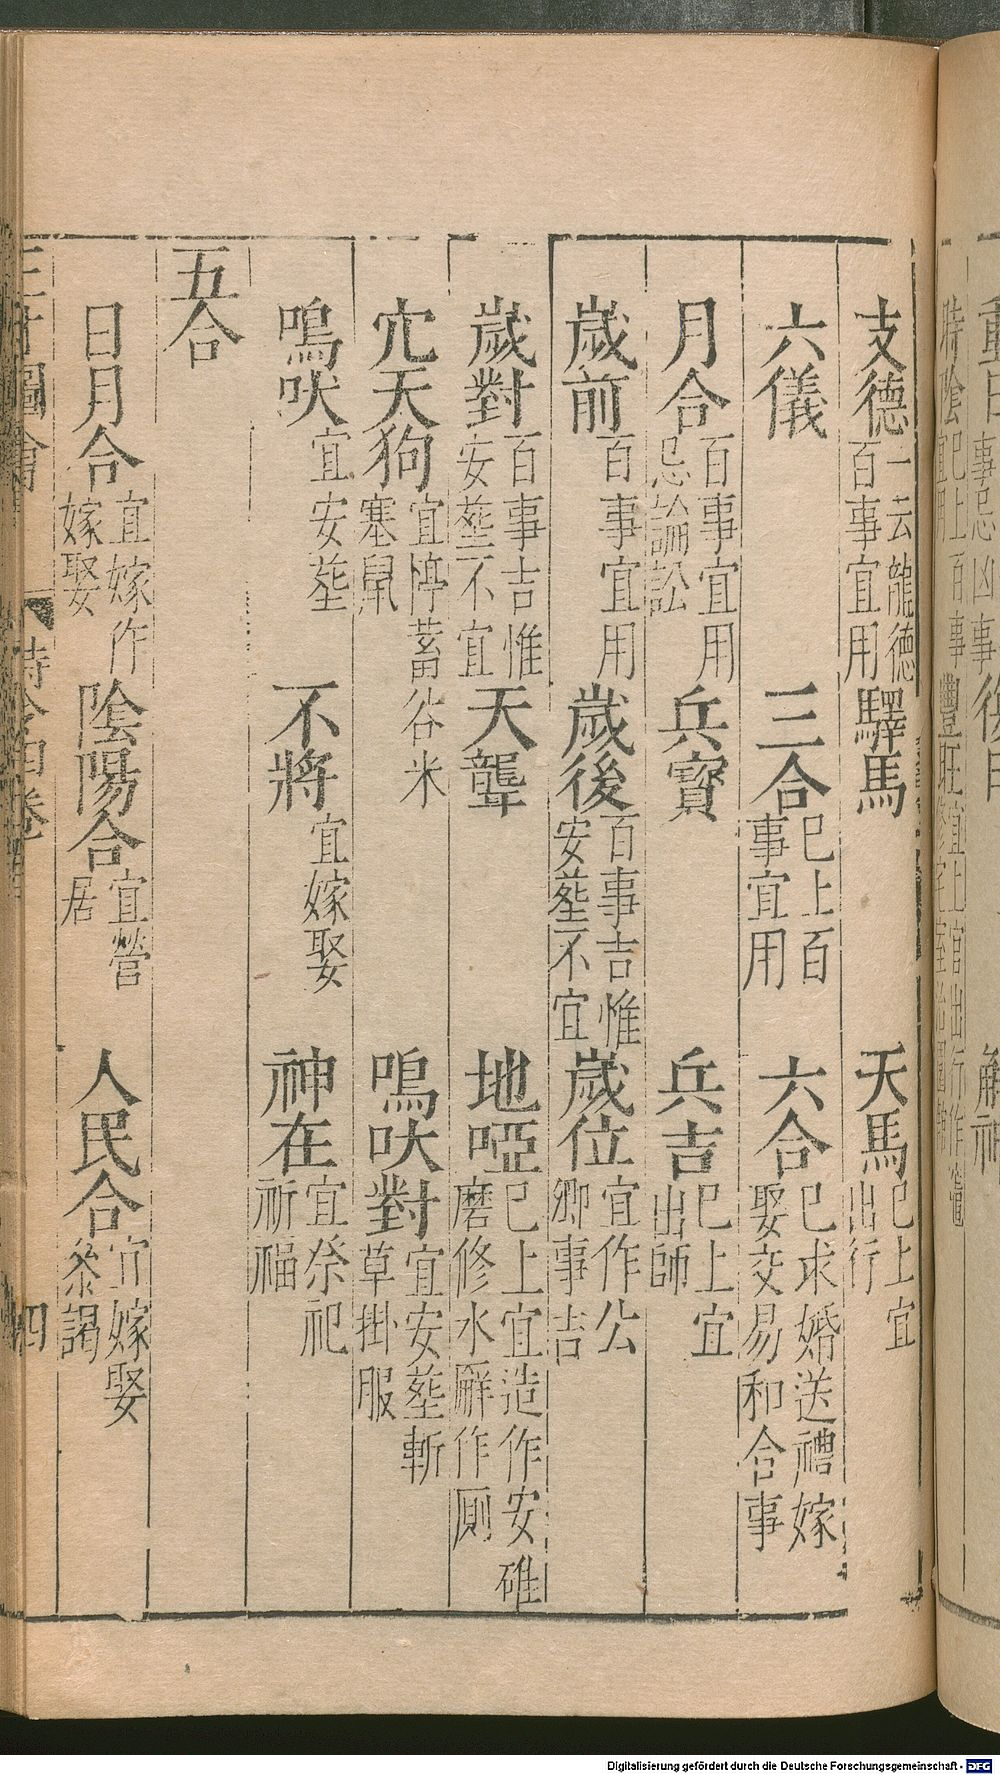 支德一云龍德百事宜用 驛馬 天馬已上宜出行
六儀 三合已上百事宜用 六合已求婚送禮嫁娶交易和合事
月合百事宜用忌論訟 兵寶 兵吉已上宜出師
歲前百事宜用 歲後百事吉惟安塟不宜 歲位宜作公卿事吉
歲對百事吉惟安塟不宜 天聾 地啞已上宜造作安碓磨修水廨作厠
穴天狗宜停蓄谷米塞鼠 鳴吠對宜安塟斬草掛服
鳴吠宜安塟 不將宜嫁娶 神在宜祭祀祈福
五合
日月合宜嫁作嫁娶 陰陽合宜營居 人民合宜嫁娶叅謁
三才圖會 時令四卷 四
Digitalisierung gefördert durch die Deutsche Forschungsgemeinschaft - DFG